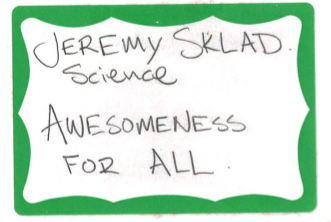 JEREMY SKLAD.
Science
AWESOMENESS
FOR ALL.